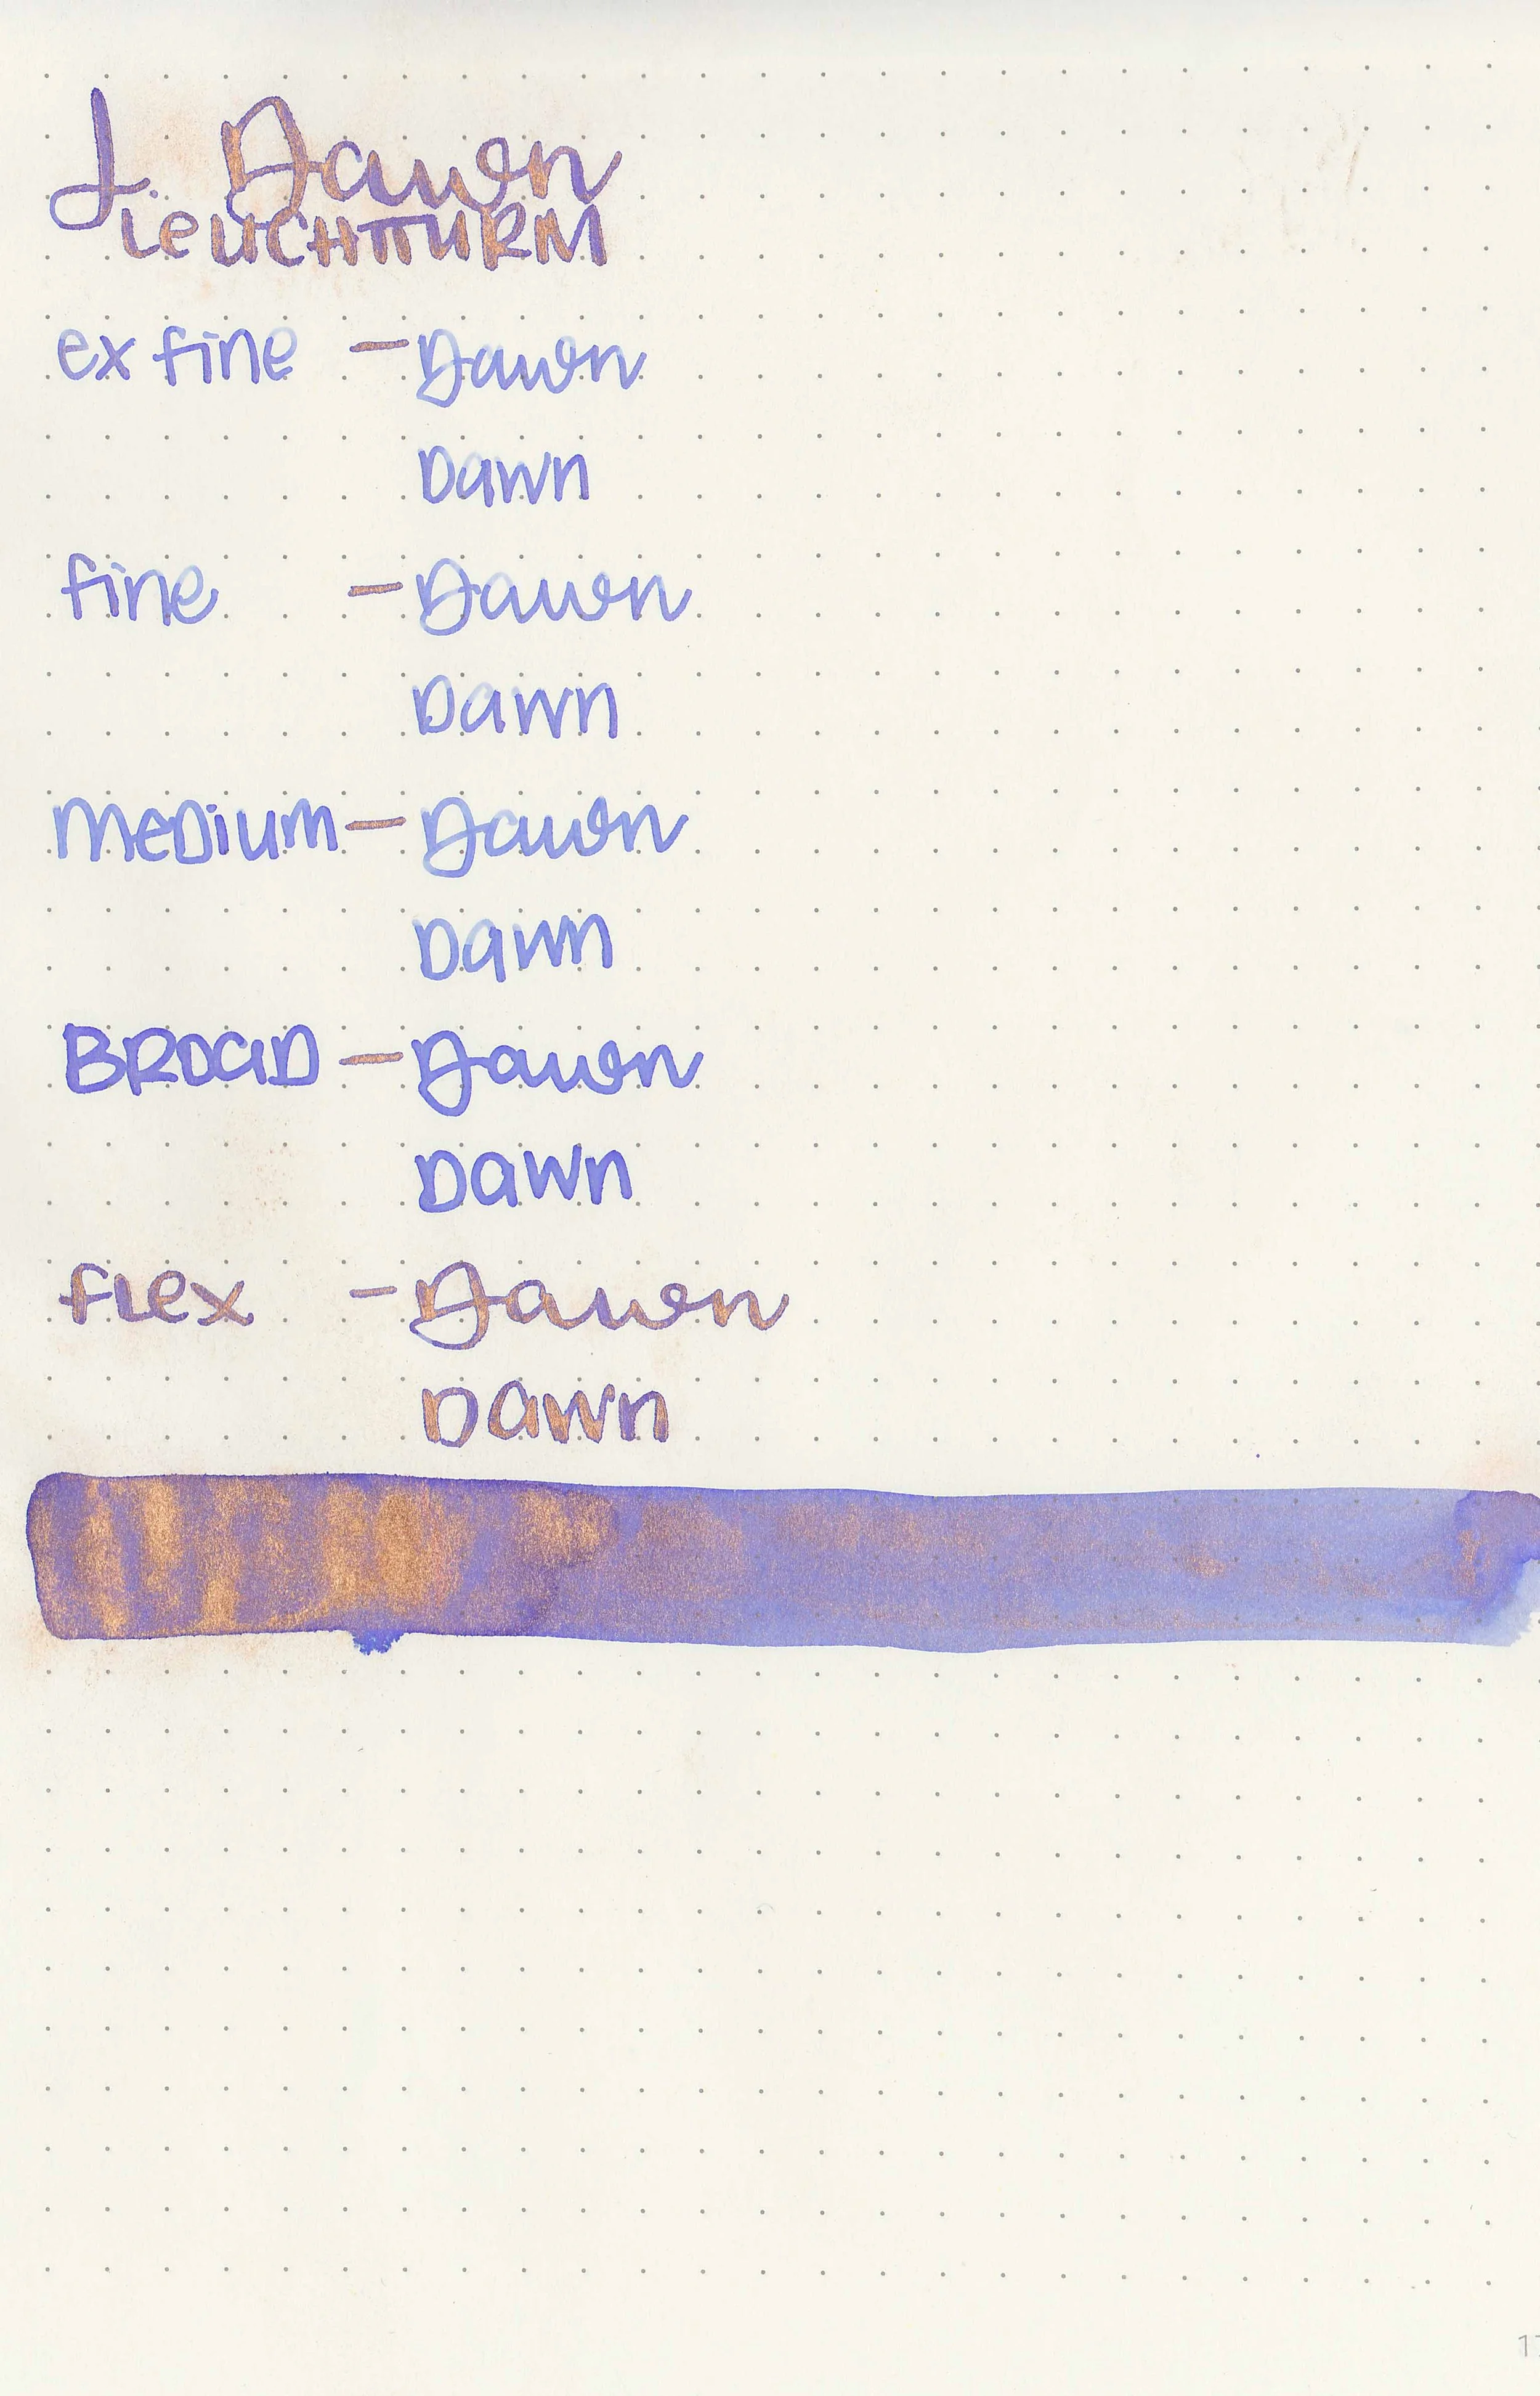 J. Dawn
LEUCHTTURM
ex fine - Dawn
Dawn
fine - Dawn
Dawn
MeDium - Dawn
Dawn
BROaD - Dawn
Dawn
fLex - Dawn
Dawn